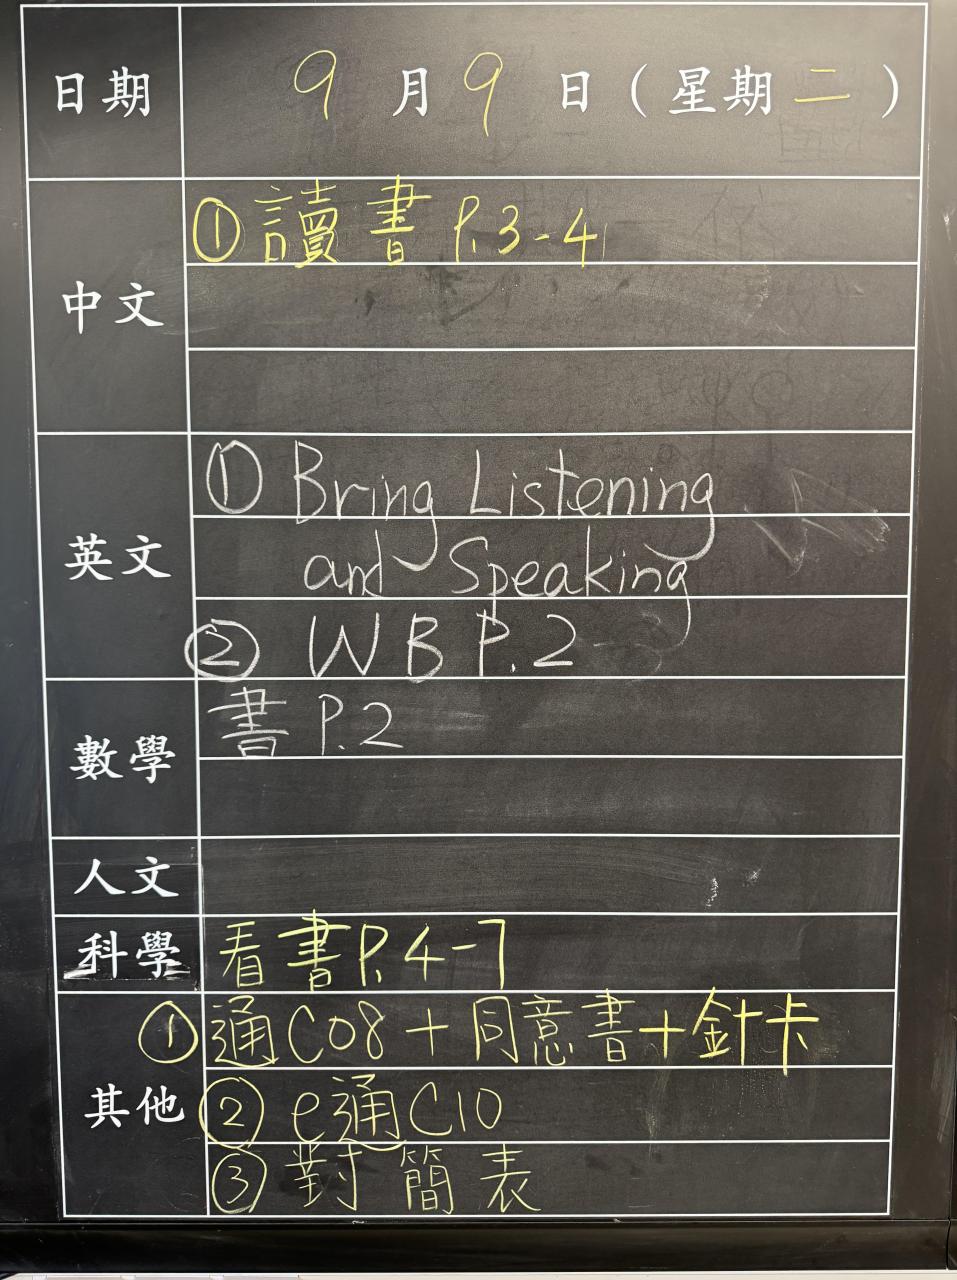 日期 9月9日(星期二)
中文 ①讀書 P.3-4
英文 ① Bring Listening
and Speaking
② WB P.2
數學 書 P.2
人文
科學 看書P.4-7
其他 ①通C08+同意書+針卡
②e通C10
③對簡表